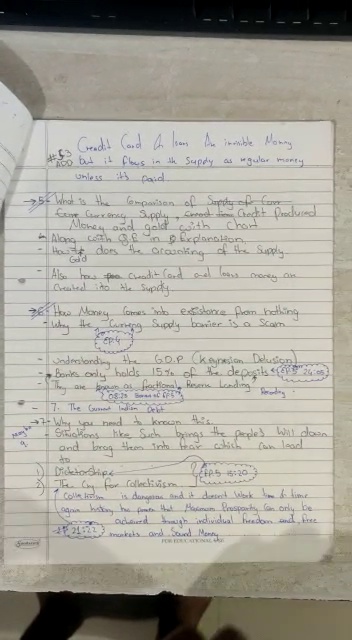 Credit Card & loan An invisible Money
#3 ADD but it flows in the supply as regular money
unless it's paid
→5- What is the Comparison of Supply of Curr
Currency Supply, Credit Produced
Money and gold with chart
Along with Q.E in Explanation
- How does the accounting of the Supply.
Gold
- Also how credit card and loans money are
created into the supply.
→6- How Money comes into existence from nothing
- Why the Currency Supply barrier is a Scam
EP.4
- understanding the G.D.P (Keynesian Delusion)
- Banks only holds 15% of the deposits EP.5
- They are known as fractional Reserve Lending
08:20 EP.5
- 7- The Current Indian Debt
→7- Why you need to known this.
Maybe 9
- Situations like Such brings the people's Will down
and brag them into fear which can lead
to
1) Dictatorship
2) The Cry for Collectivism
EP.5 15:20
Collectivism is dangerous and it doesn't Work time & time
again history has proven that Maximum Prosperity can only be
achieved through individual freedom and free
markets and Sound Money
EP 21:22
FOR EDUCATIONAL USE